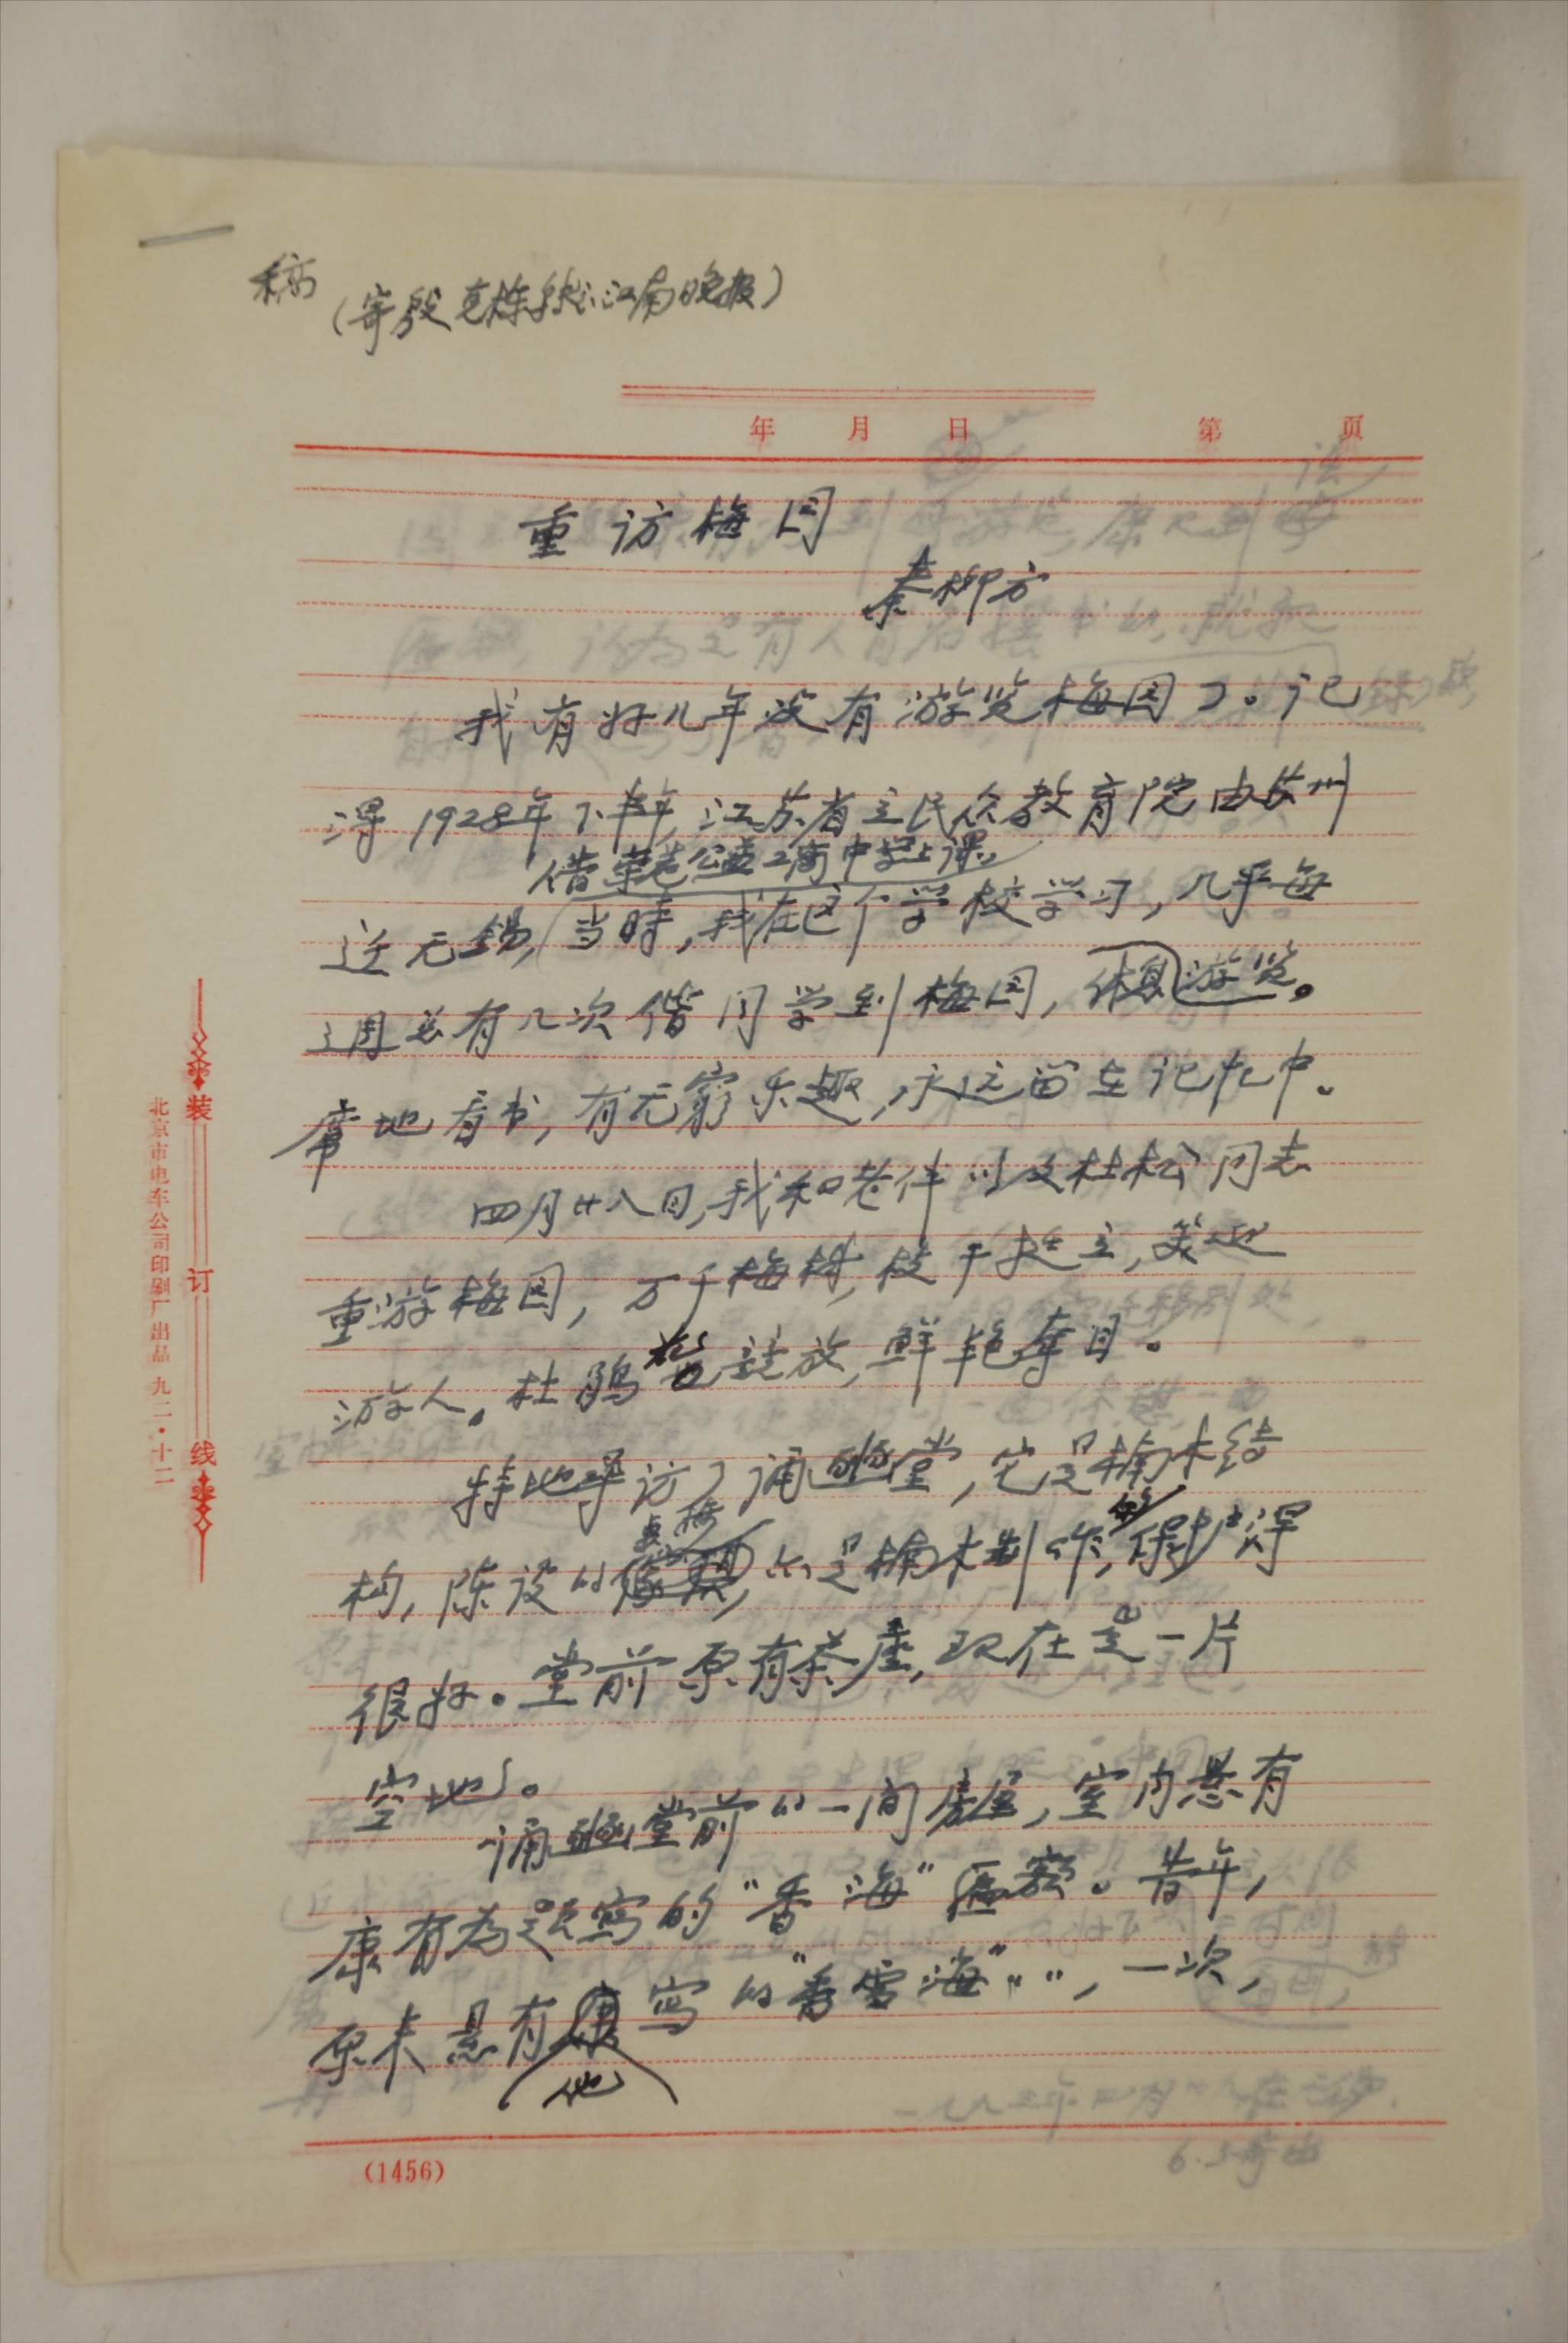 稿
(寄段克栋转江南晚报)
年 月 日 第 页
重访梅园
秦柳方
我有好几年没有游览梅园了。记
得1928年下半年,江苏省立民众教育院由苏州
借荣巷公益工商中学上课,
迁无锡,当时,我在这个学校学习,几乎每
週总有几次偕同学到梅园,休息游览。
席地看书,有无穷乐趣,永远留在记忆中。
四月廿八日,我和老伴以及杜松同志
重游梅园,万千梅树,枝干挺立,笑迎
游人。杜鹃花竞放,鲜艳夺目。
特地寻访了诵豳堂,它是楠木结
桌椅 的
构,陈设的傢具,亦是楠木制作,保护得
很好。堂前原有茶座,现在是一片
空地。
诵豳堂前的一间房屋,室内悬有
康有为题写的"香海"匾额。昔年,
原来悬有康写的"香雪海"……,一次,
他
(1456)
装
订
线
北京市电车公司印刷厂出品 九二·十二